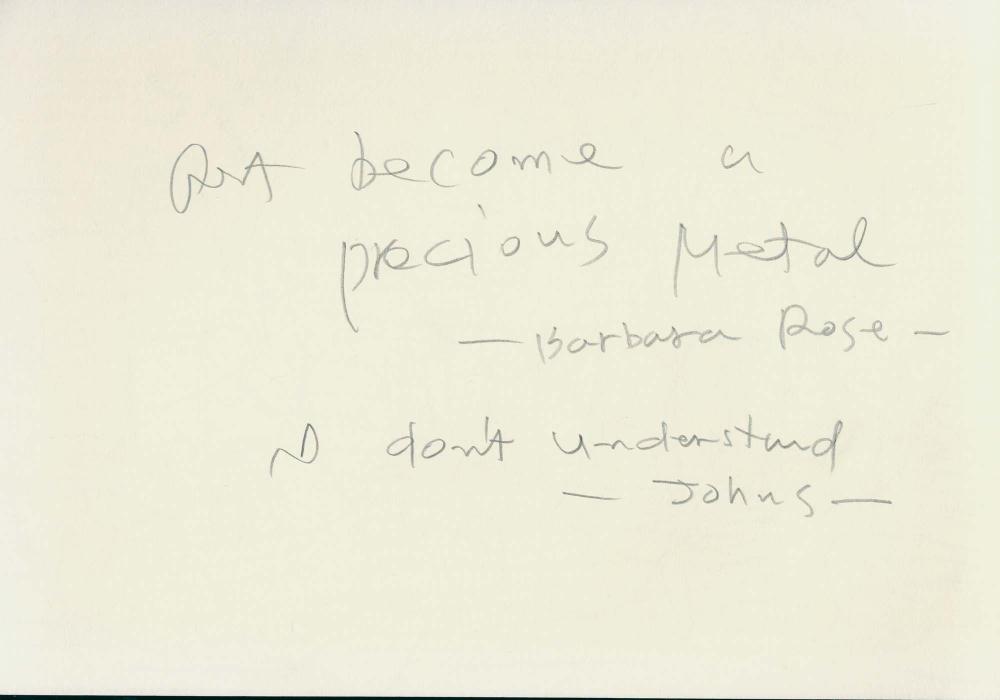 Art become a
precious Metal
— Barbara Rose —
I don't understand
— Johns —